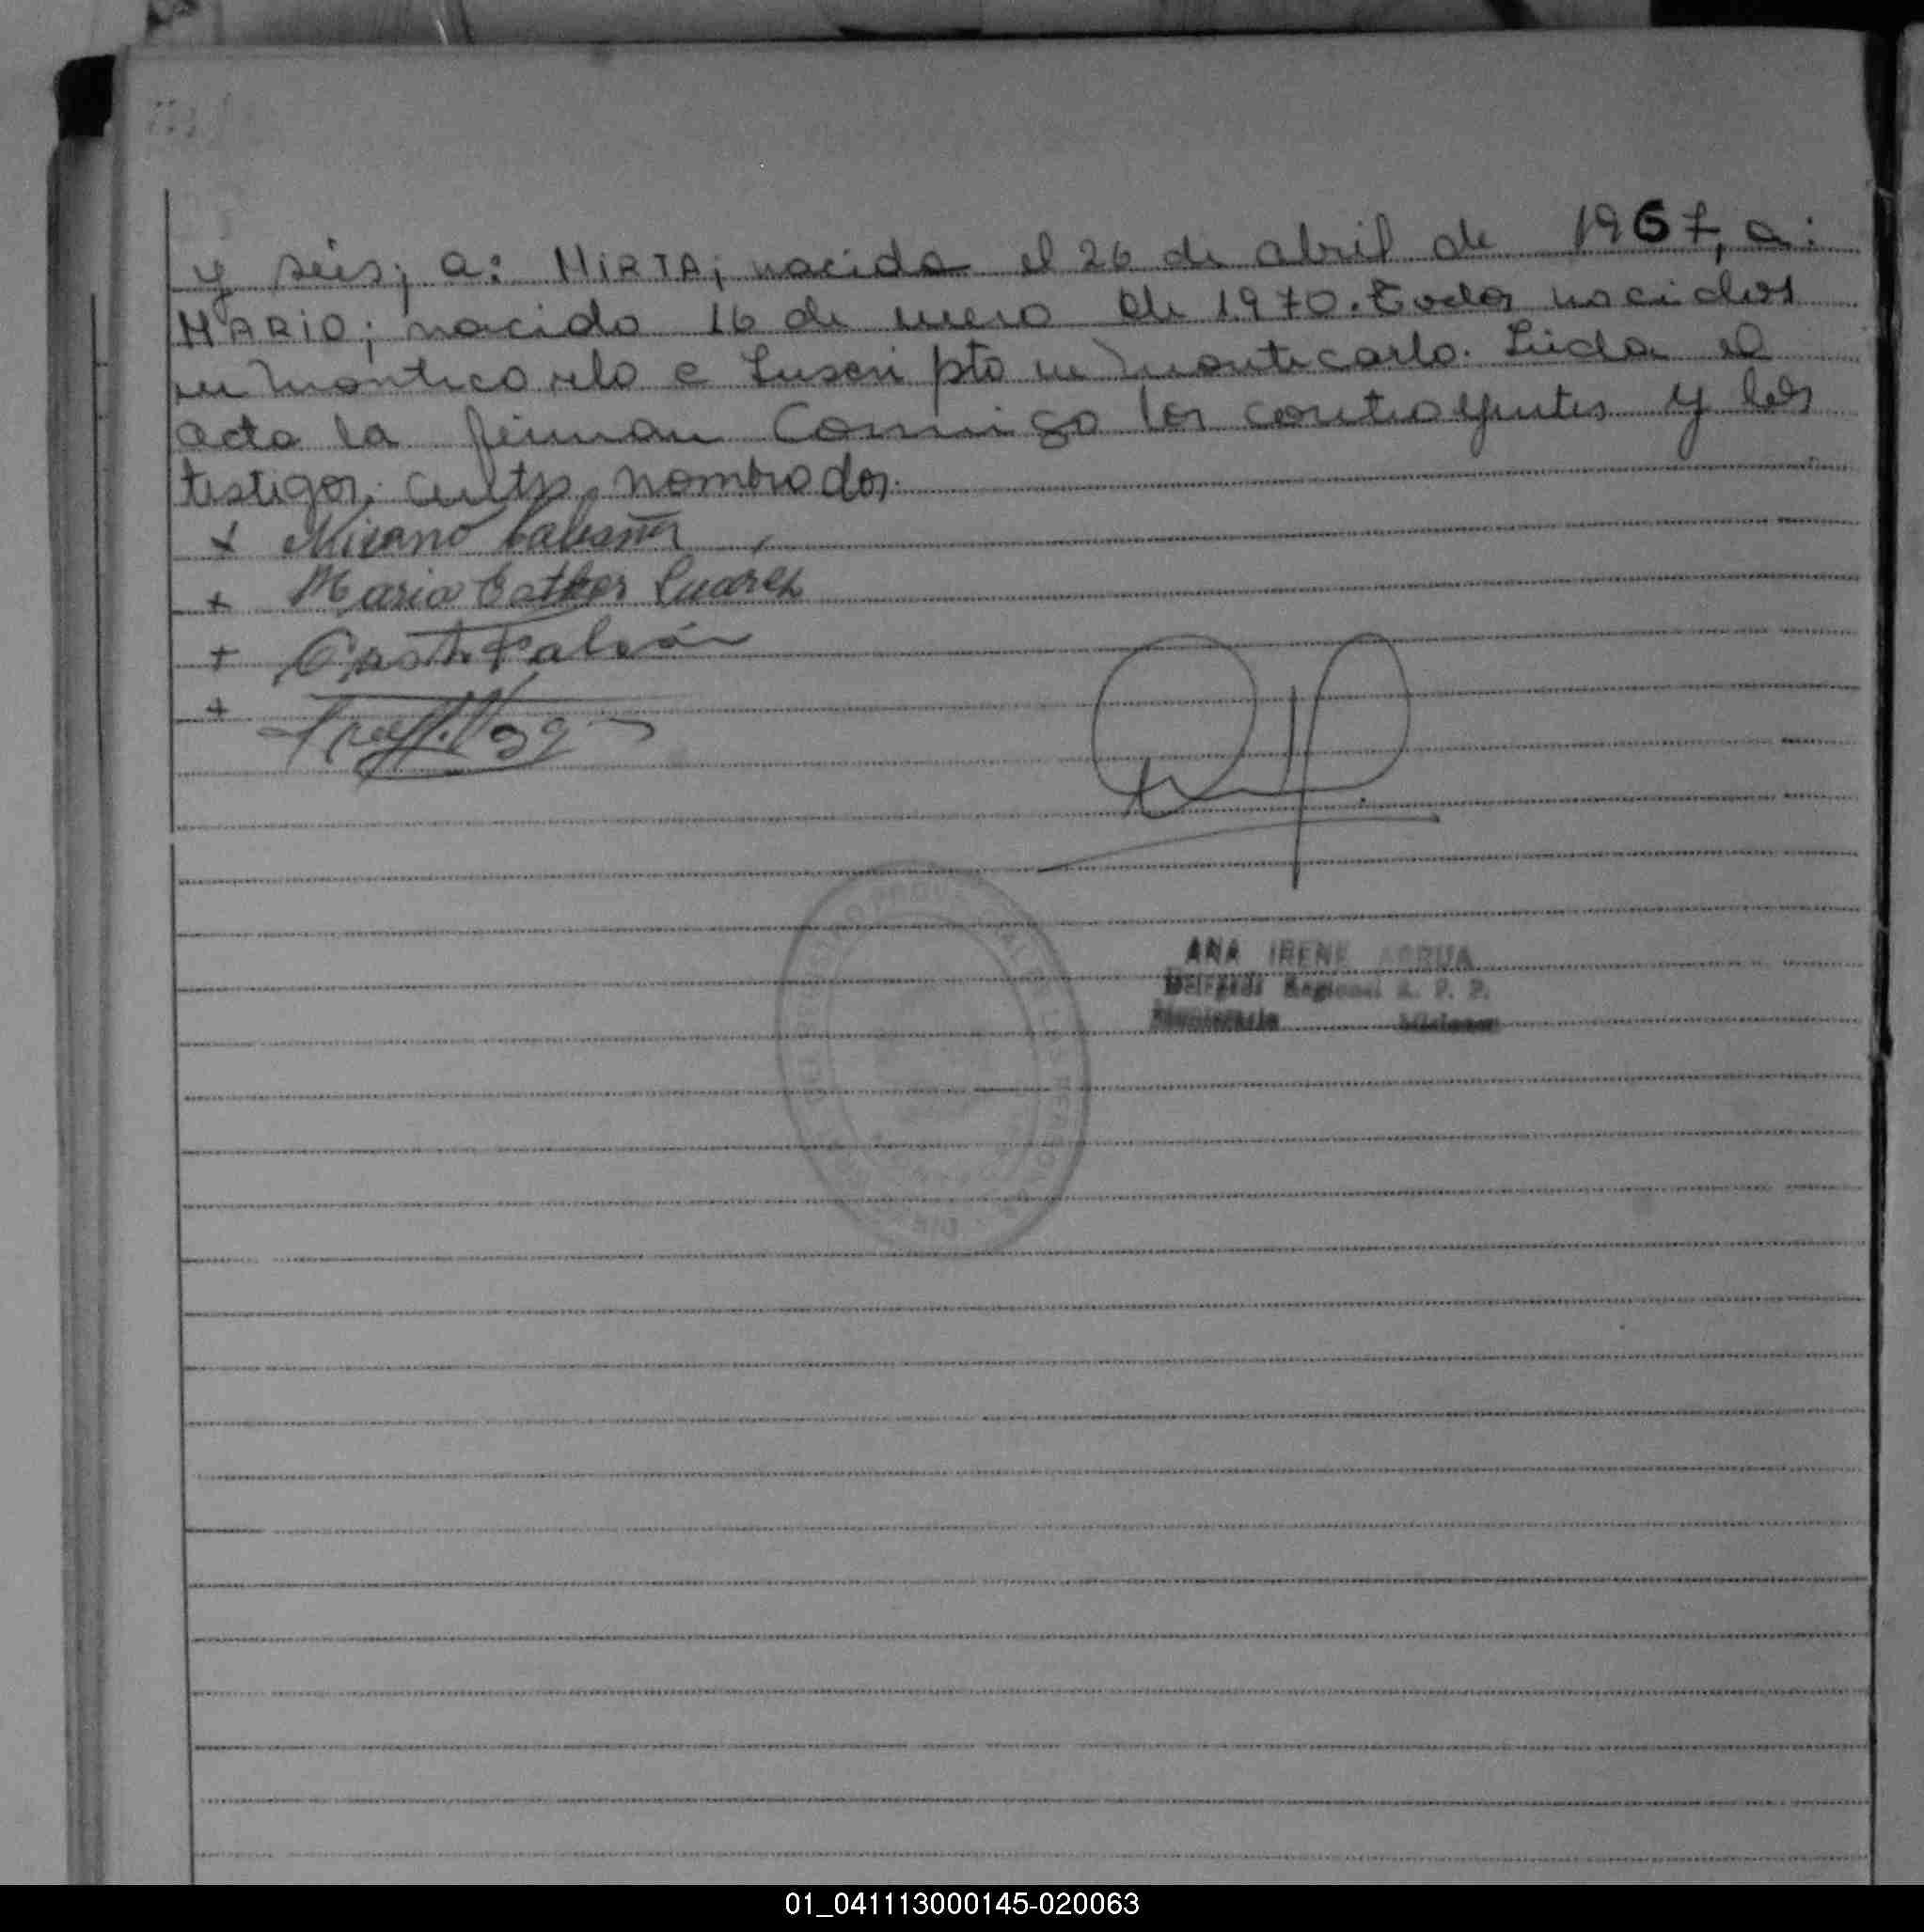 y seis; a: MIRTA; nacida el 26 de abril de 1967, a:
MARIO; nacido 16 de enero de 1970. Todos nacidos
en Montecarlo e Inscripto en Montecarlo. Leida el
acta la firman Conmigo los contrayentes y los
testigos antes nombrados.
+
+ Maria Esther Suarez
+
+
ANA IRENE
01_041113000145-020063